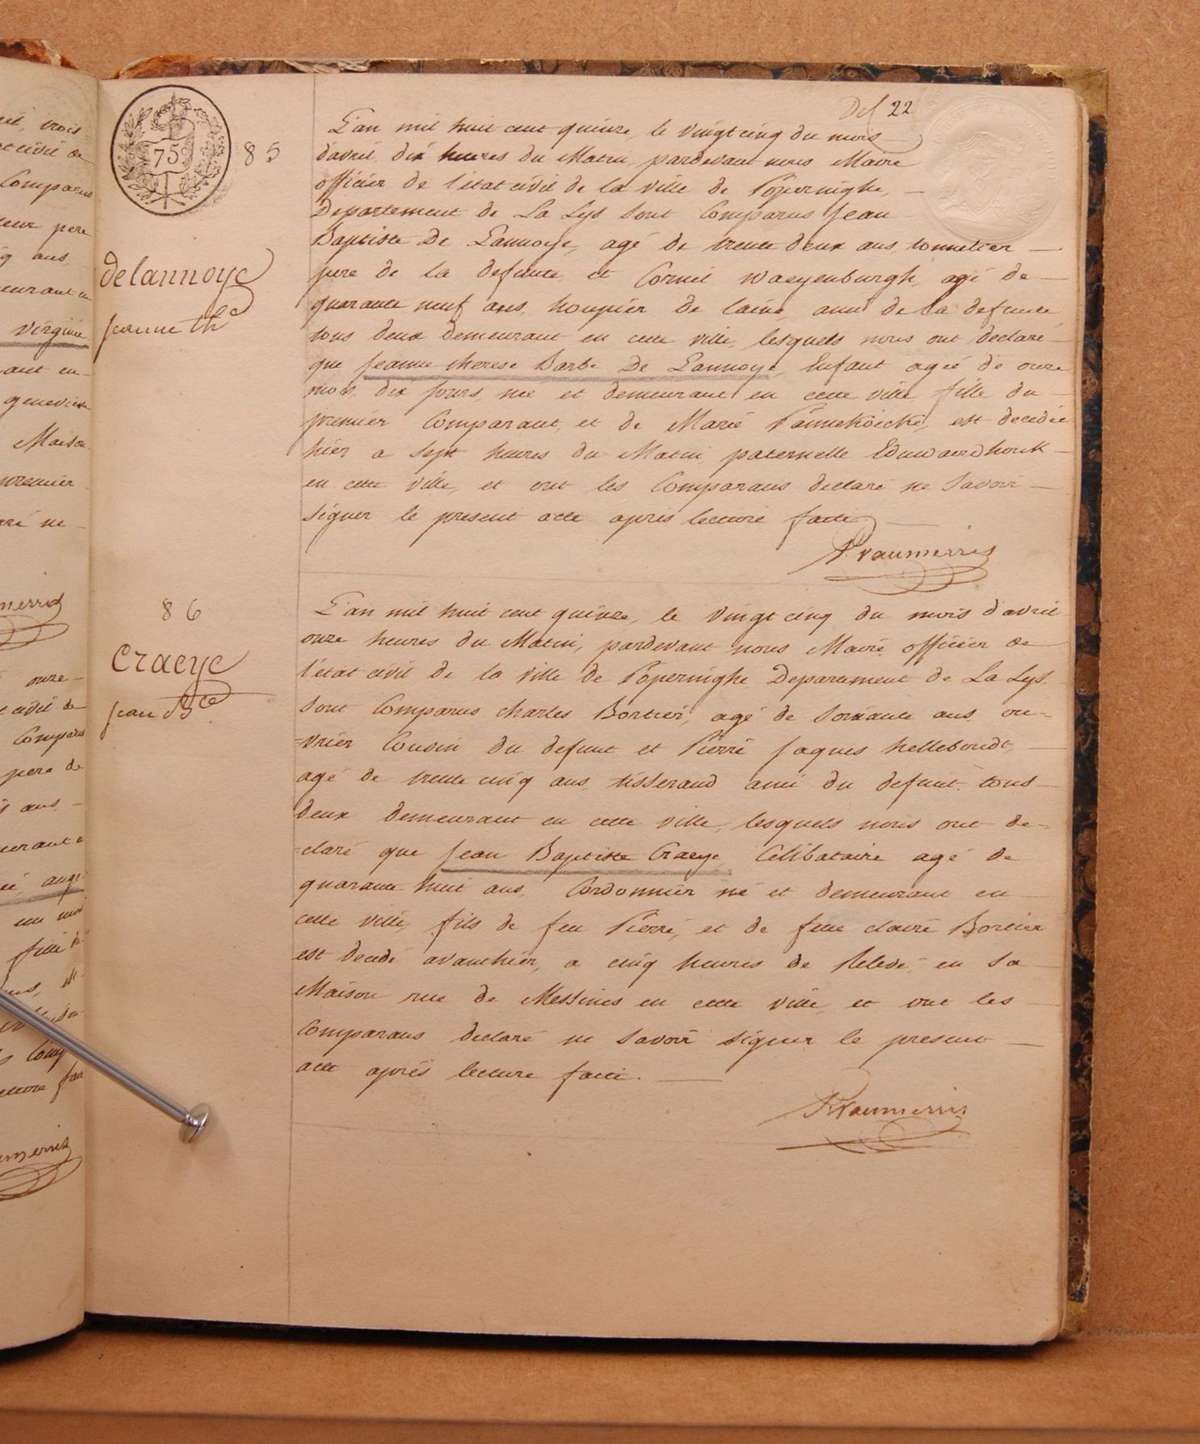 Del 22
75
85
L'an mil huit cent quinze, le vingt cinq du mois
d'avril, dix heures du Matin, pardevant nous Maire
officier de l'état civil de la ville de Poperinghe,
Departement de La Lys sont Comparus Jean
Baptiste De Lannoye, agé de trente deux ans, tonnelier
pere de la defunte et Corneil Waeyenburgh, agé de
quarante neuf ans, houpier de laine, ami de la defunte
tous deux demeurant en cette ville, lesquels nous ont declaré
que Jeanne therese Barbe De Lannoye, Enfant agée de onze
mois dix jours, née et demeurant en cette ville fille du
premier Comparant, et de Marie est decedée
hier a sept heures du Matin, paternelle
en cette ville, et ont les Comparans declaré ne savoir
signer le present acte apres lecture faite
delannoye
Jeanne the
P. vanmerris
86
Craeye
Jean Bte
L'an mil huit cent quinze, le vingt cinq du mois d'avril
onze heures du Matin, pardevant nous Maire officier de
l'état civil de la ville de Poperinghe Departement de La Lys
sont Comparus Charles Bortier, agé de soixante ans, ou-
-vrier Cousin du defunt et Pierre Jaques helleboudt,
agé de trente cinq ans, tisserand ami du defunt, tous
deux demeurant en cette ville, lesquels nous ont de-
-claré que Jean Baptiste Craeye, Célibataire agé de
quarante huit ans, Cordonnier né et demeurant en
cette ville, fils de feu Pierre, et de feue claire Bortier
est decedé avanthier, a cinq heures de Relevé, en sa
Maison rue de Messines en cette ville et ont les
Comparans declaré ne savoir signer le present
acte après lecture faite.
P. vanmerris